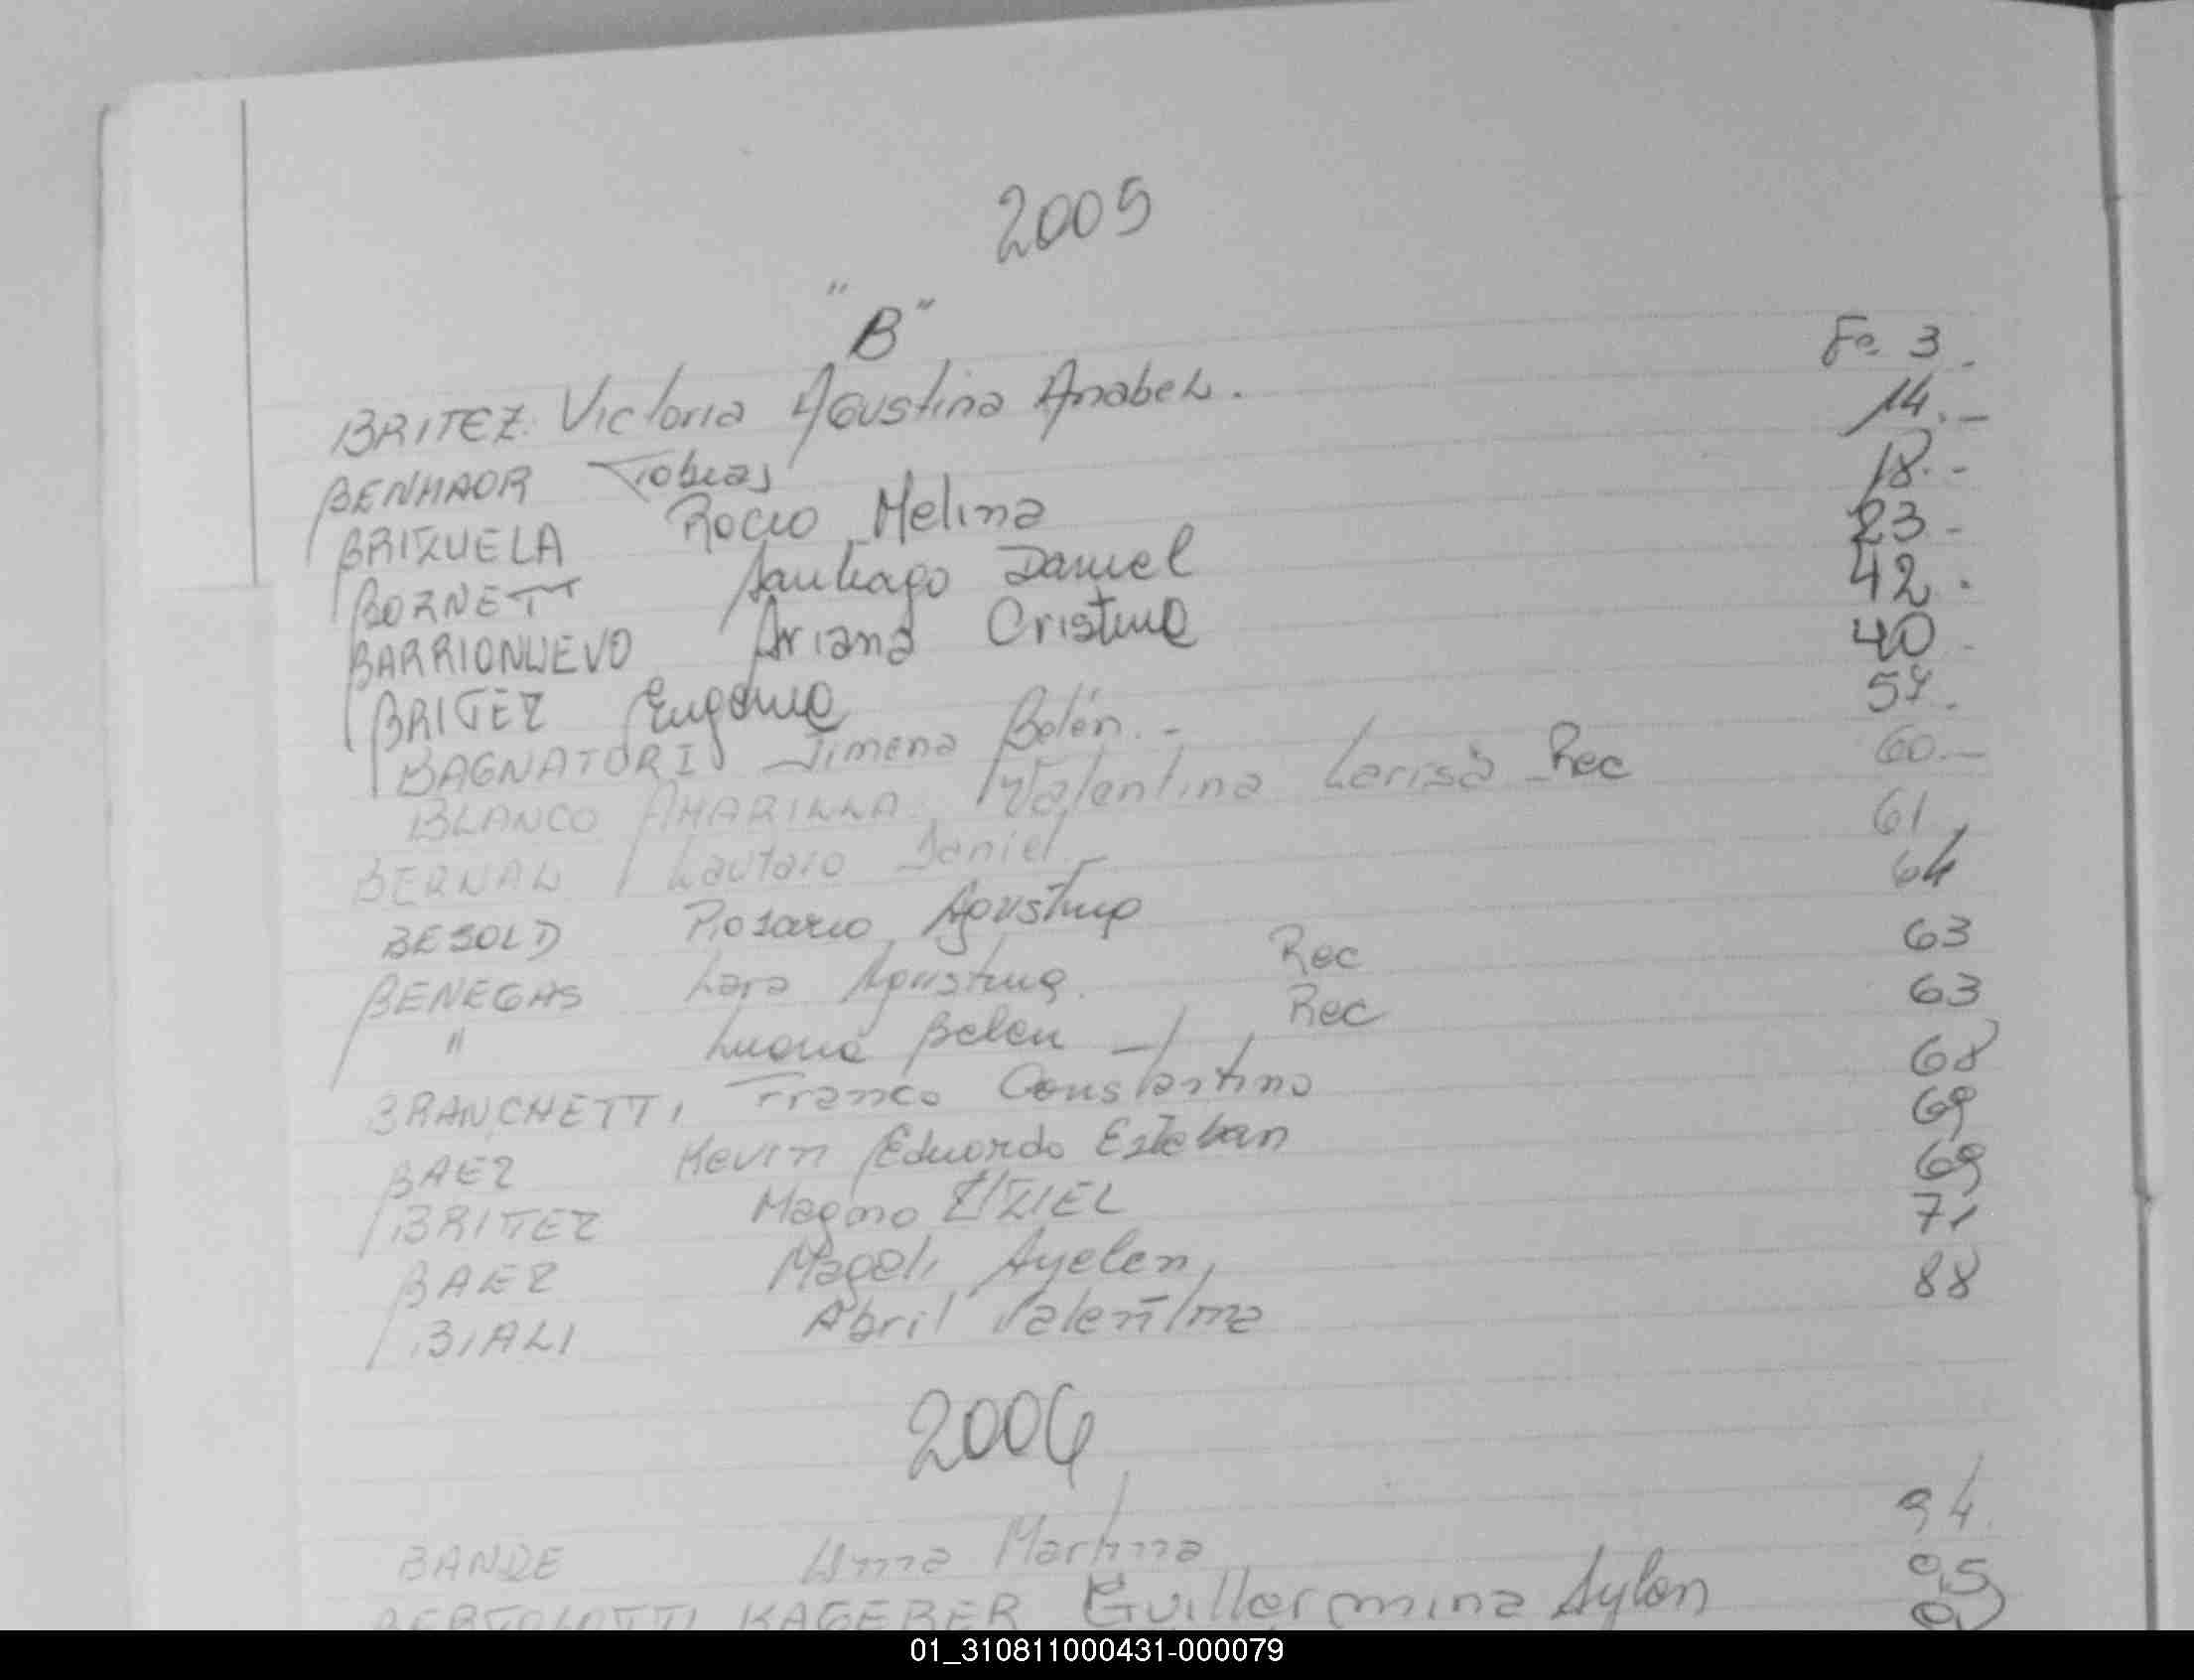 2005
"B"
BRITEZ. Victoria Agustina Anabel. Fo. 3.
BENHAOR Tobias 14.-
BRIZUELA Rocio Melina 18.-
BORNETT Santiago Daniel 23-
BARRIONUEVO Ariana Cristina 42.
BRITEZ Eugenia 40-
BAGNATORI Jimena Belén.- 57.
BLANCO AMARILLA Valentina Larisa Rec 60.-
BERNAL Lautaro Daniel 61
BESOLD Rosario Agustina 64
BENEGAS Lara Agustina. Rec 63
" Luana Belen - Rec 63
BRANCHETTI Franco Constantino 68
BAEZ Kevin Eduardo Esteban 69
BRITEZ Magno 69
BAEZ Mageli Ayelen 71
BIALI Abril Valentina 88
2006
BANDE Uma Martina 94
BERTOLOTTI KAGERER Guillermina Aylen 95